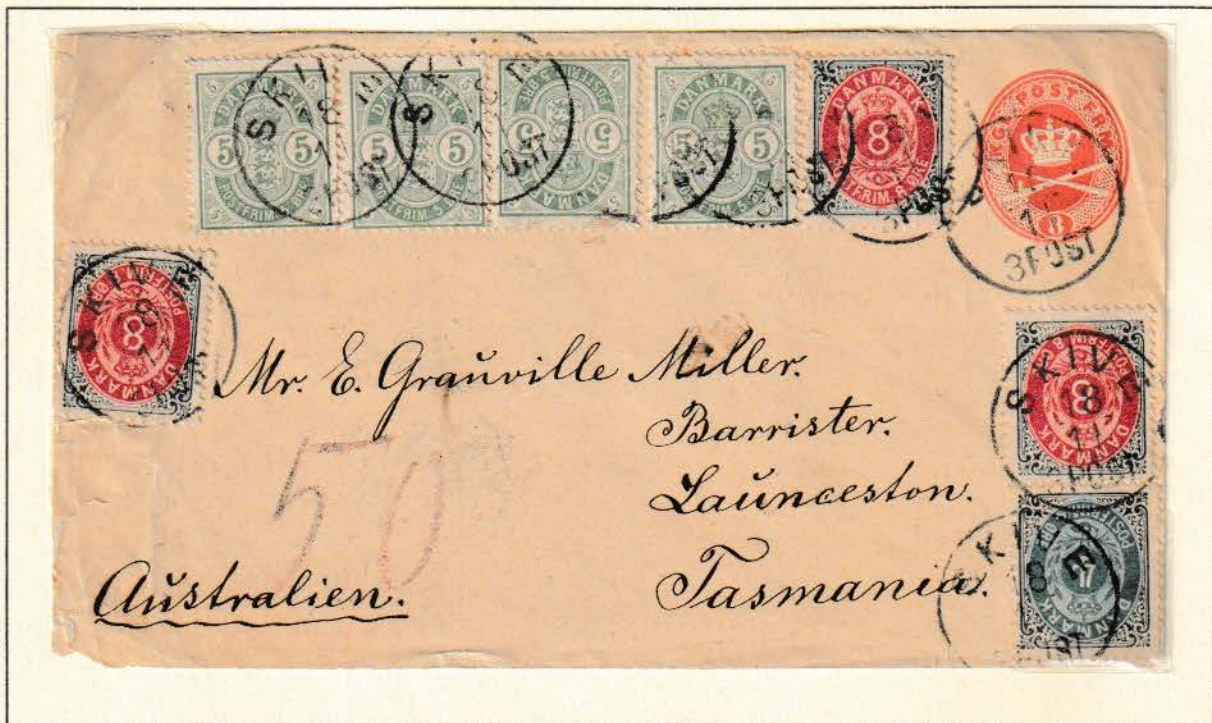 DANMARK 5 5 POSTFRIM. 5 ØRE
DANMARK 5 5 POSTFRIM. 5 ØRE
DANMARK 5 5 POSTFRIM. 5 ØRE
DANMARK 5 5 POSTFRIM. 5 ØRE
DANMARK 8 POSTFRIM. 8 ØRE
POST FRM 8
SKIVE 18 3 POST
SKIVE
3POST
3POST
DANMARK 8
SKIVE 18
DANMARK 8 POSTFRIM. 8
SKIVE 18
DANMARK 4
SKIVE
Mr. E. Grauville Miller.
Barrister.
Launceston.
Tasmania.
50
Australien.